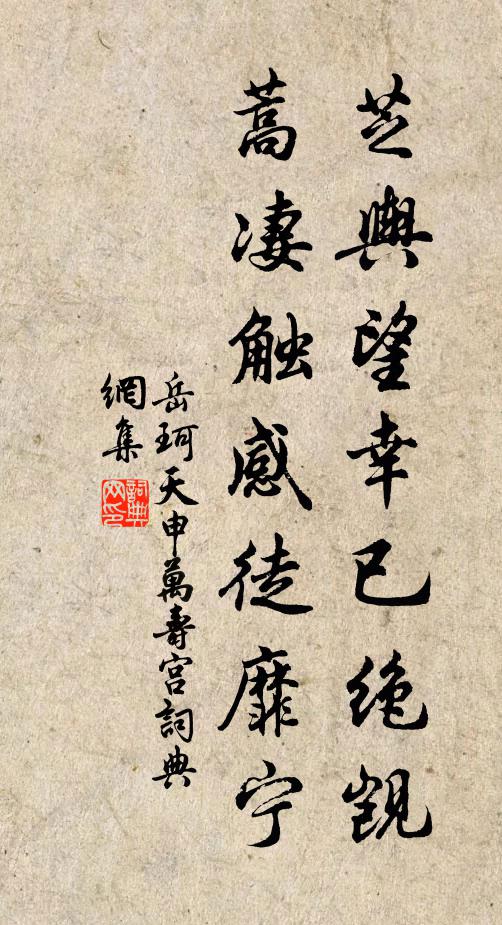 芝輿望幸已绝觊
蒿凄触感徒靡宁
岳珂天申萬壽宫詞典
網集
詞典
网印